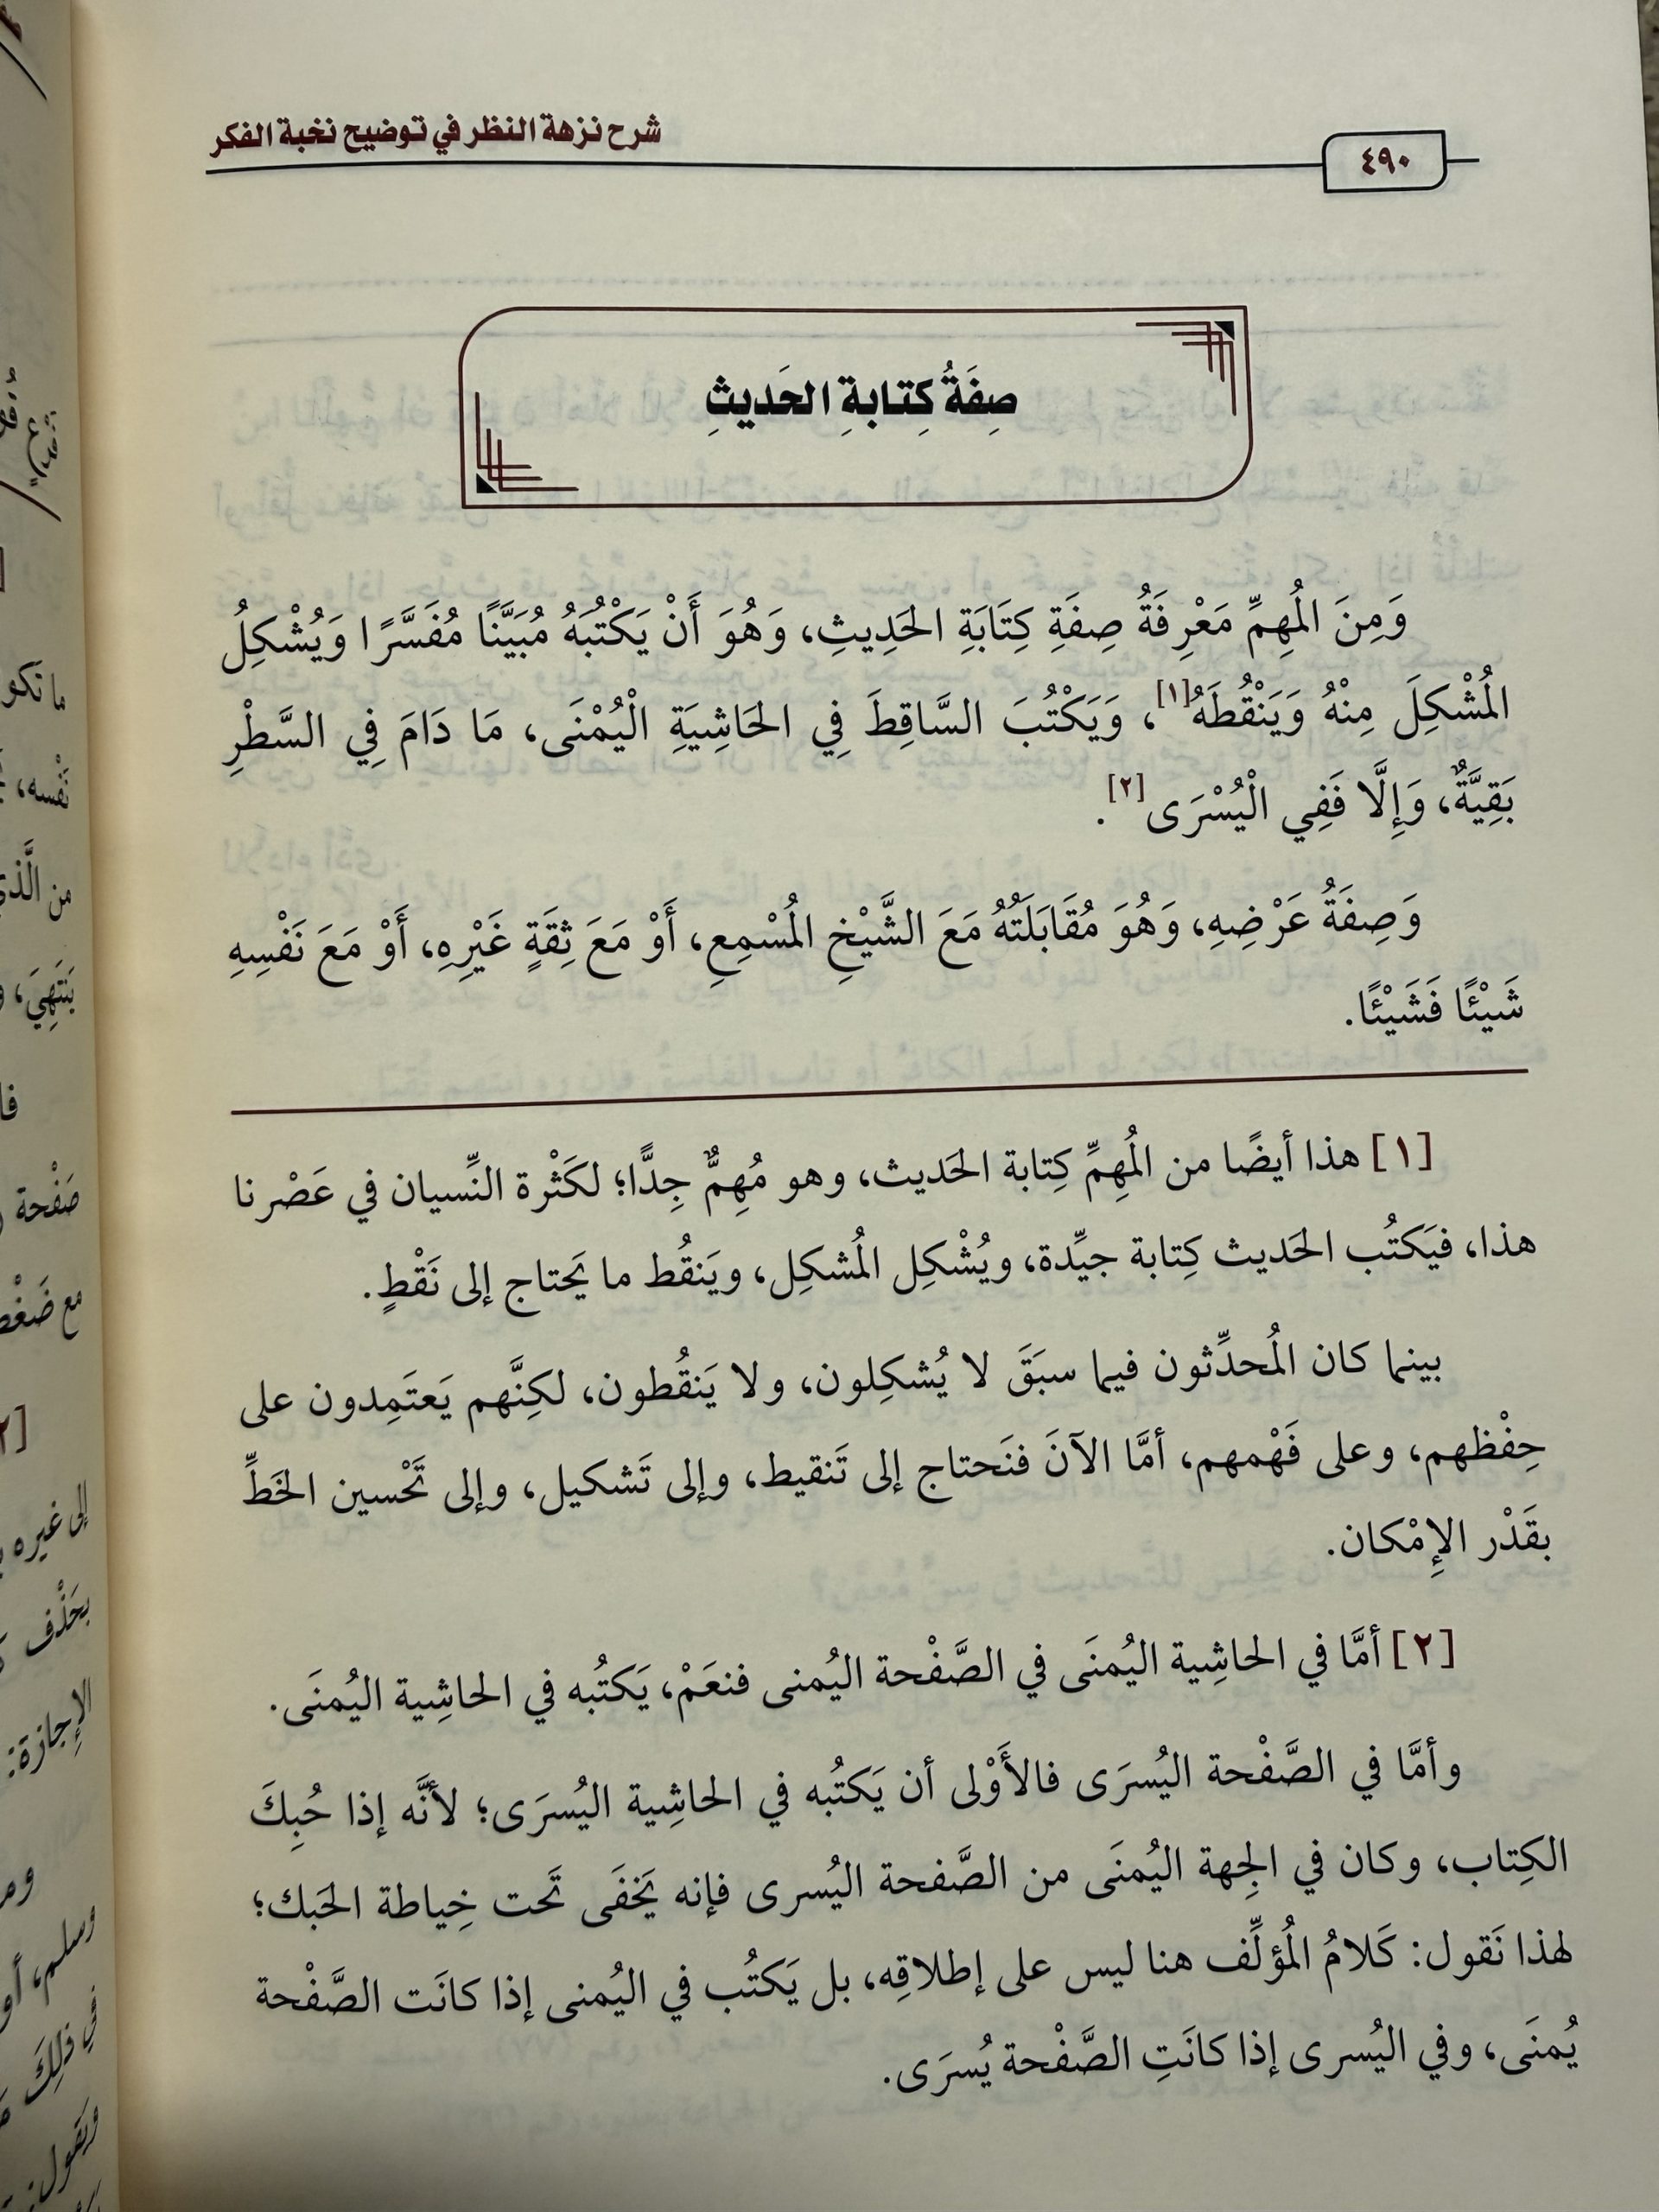 شرح نزهة النظر في توضيح نخبة الفكر
٤٩٠
صِفَةُ كِتابةِ الحَديثِ
وَمِنَ المُهِمِّ مَعْرِفَةُ صِفَةِ كِتَابَةِ الحَدِيثِ، وَهُوَ أَنْ يَكْتُبَهُ مُبَيَّنًا مُفَسَّرًا وَيُشْكِلُ
المُشْكِلَ مِنْهُ وَيَنْقُطَهُ[١]، وَيَكْتُبَ السَّاقِطَ فِي الحَاشِيَةِ الْيُمْنَى، مَا دَامَ فِي السَّطْرِ
بَقِيَّةٌ، وَإِلَّا فَفِي الْيُسْرَى[٢].
وَصِفَةُ عَرْضِهِ، وَهُوَ مُقَابَلَتُهُ مَعَ الشَّيْخِ المُسْمِعِ، أَوْ مَعَ ثِقَةٍ غَيْرِهِ، أَوْ مَعَ نَفْسِهِ
شَيْئًا فَشَيْئًا.
[١] هذا أيضًا من المُهِمِّ كِتابة الحَديث، وهو مُهِمٌّ جِدًّا؛ لكَثْرة النِّسيان في عَصْرنا
هذا، فيَكتُب الحَديث كِتابة جيِّدة، ويُشْكِل المُشكِل، ويَنقُط ما يَحتاج إلى نَقْطٍ.
بينما كان المُحدِّثون فيما سبَقَ لا يُشكِلون، ولا يَنقُطون، لكِنَّهم يَعتَمِدون على
حِفْظهم، وعلى فَهْمهم، أمَّا الآنَ فنَحتاج إلى تَنقيط، وإلى تَشكيل، وإلى تَحْسين الخَطِّ
بقَدْر الإِمْكان.
[٢] أمَّا في الحاشِية اليُمنَى في الصَّفْحة اليُمنى فنعَمْ، يَكتُبه في الحاشِية اليُمنَى.
وأمَّا في الصَّفْحة اليُسرَى فالأَوْلى أن يَكتُبه في الحاشِية اليُسرَى؛ لأنَّه إذا حُبِكَ
الكِتاب، وكان في الجِهة اليُمنَى من الصَّفحة اليُسرى فإنه يَخفَى تَحت خِياطة الحَبك؛
لهذا نَقول: كَلامُ المُؤلِّف هنا ليس على إطلاقِه، بل يَكتُب في اليُمنى إذا كانَت الصَّفْحة
يُمنَى، وفي اليُسرى إذا كانَتِ الصَّفْحة يُسرَى.